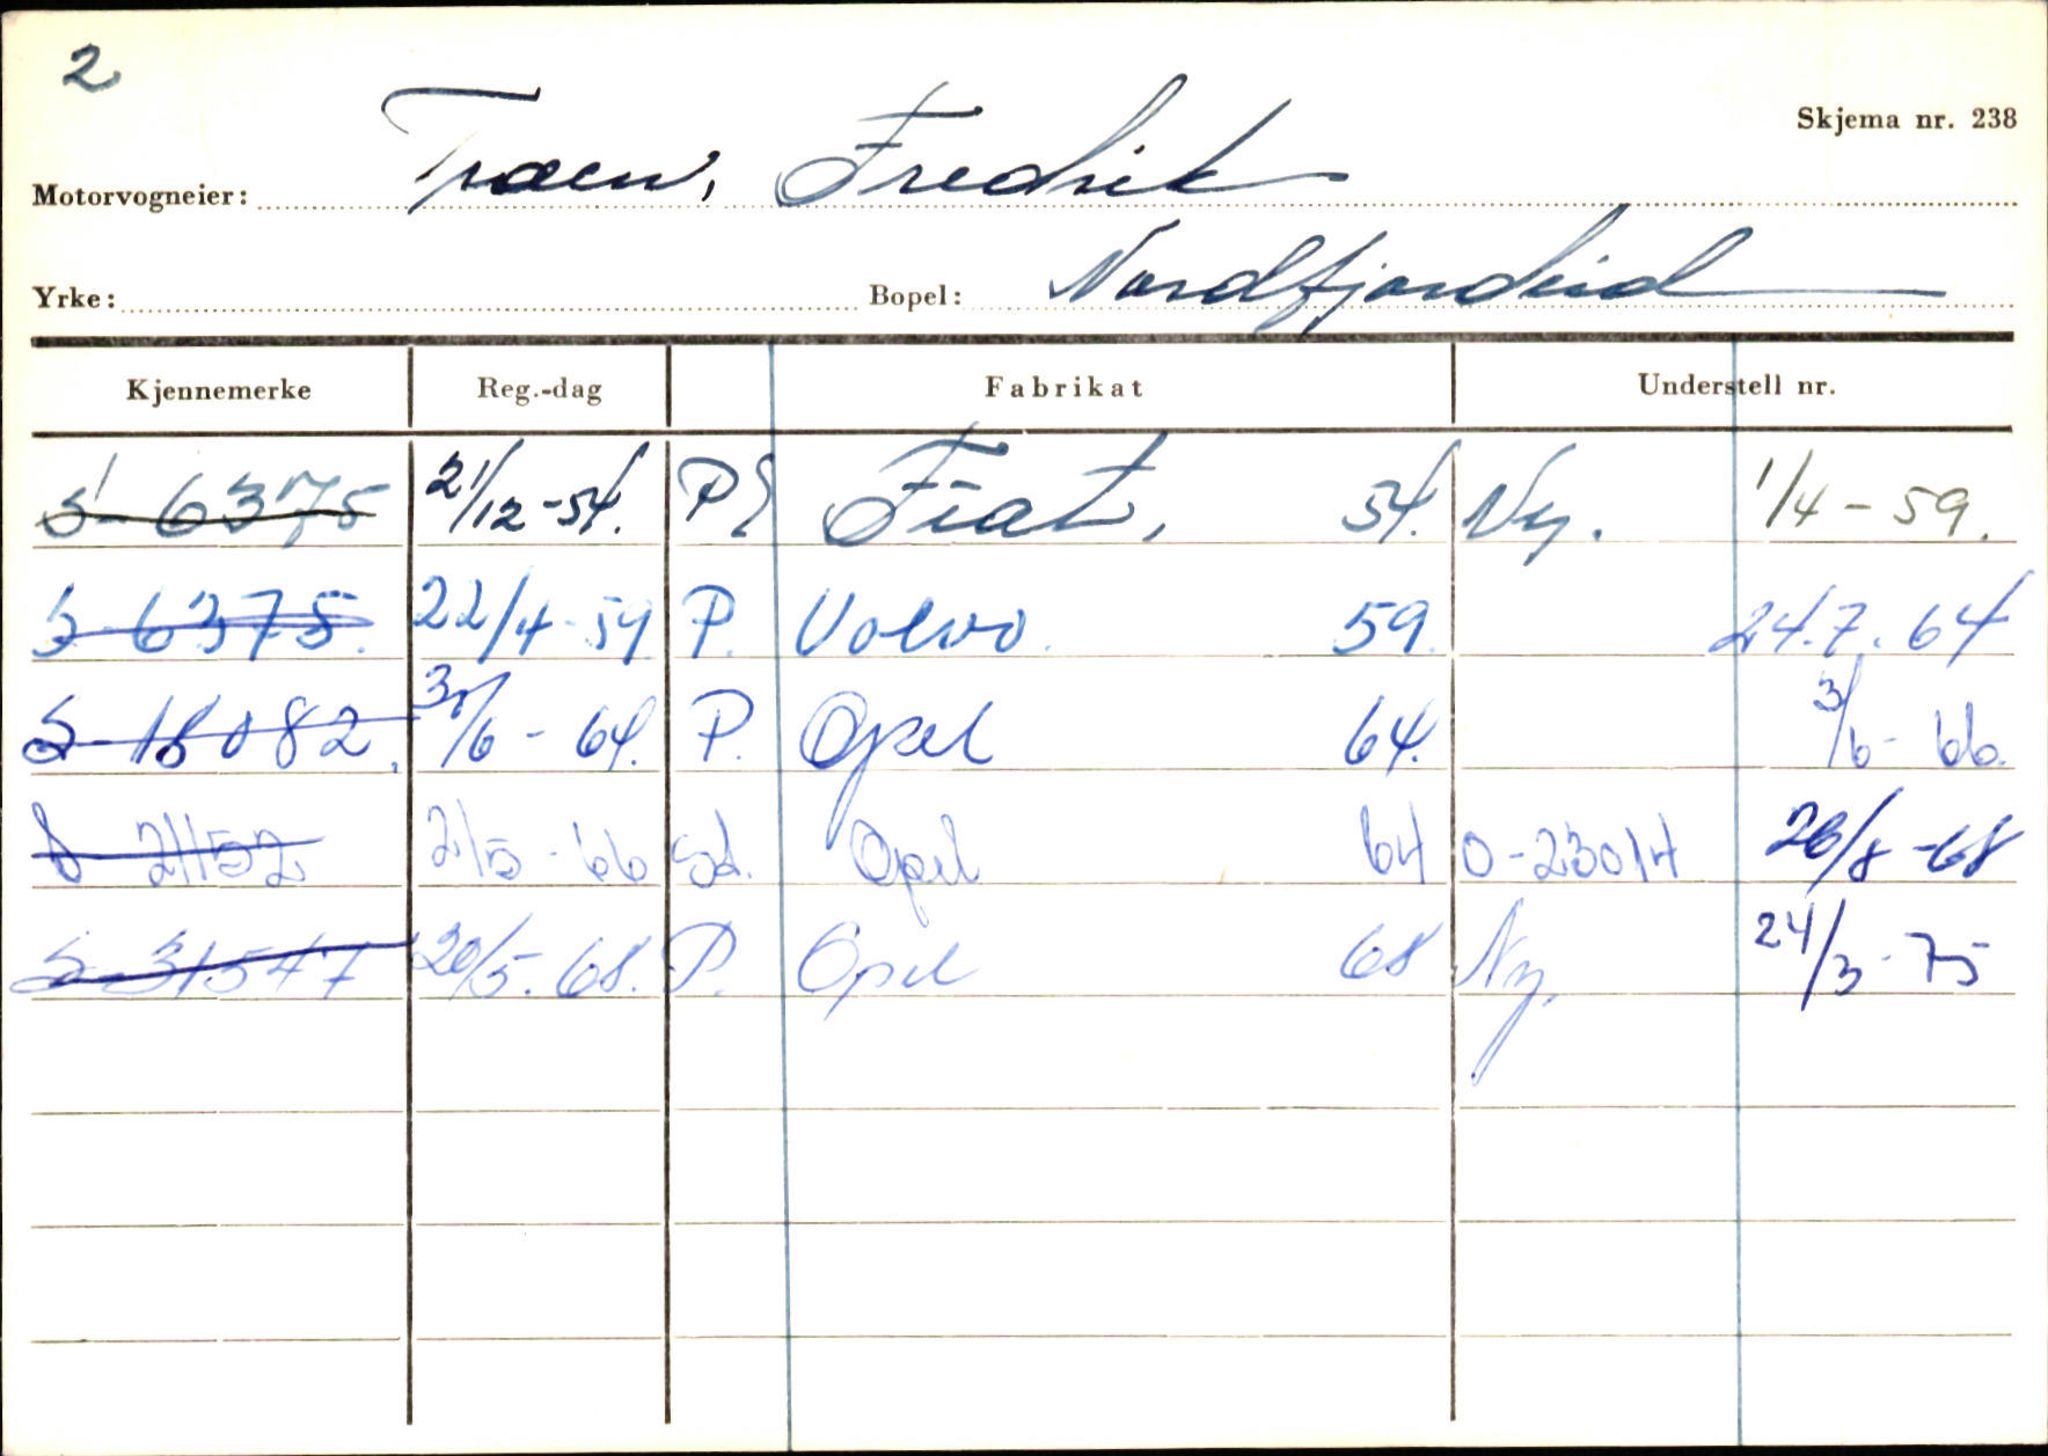 2
Skjema nr. 238
Motorvogneier: Træen, Fredrik
Yrke: Bopel: Nordfjordeid
Kjennemerke Reg.-dag Fabrikat Understell nr.
S-6375 21/12-54. P Fiat, 54. Ny. 1/4-59.
S-6375. 22/4-59. P. Volvo. 59. 24.7.64
S-18082. /6-64. P. Opel 64. 3/6-66.
S 21152 2/5-66 Sd. Opel 64 O-23014 /8-68
S-31547 20/5.-68. P. Opel 68 Ny. 24/3-75